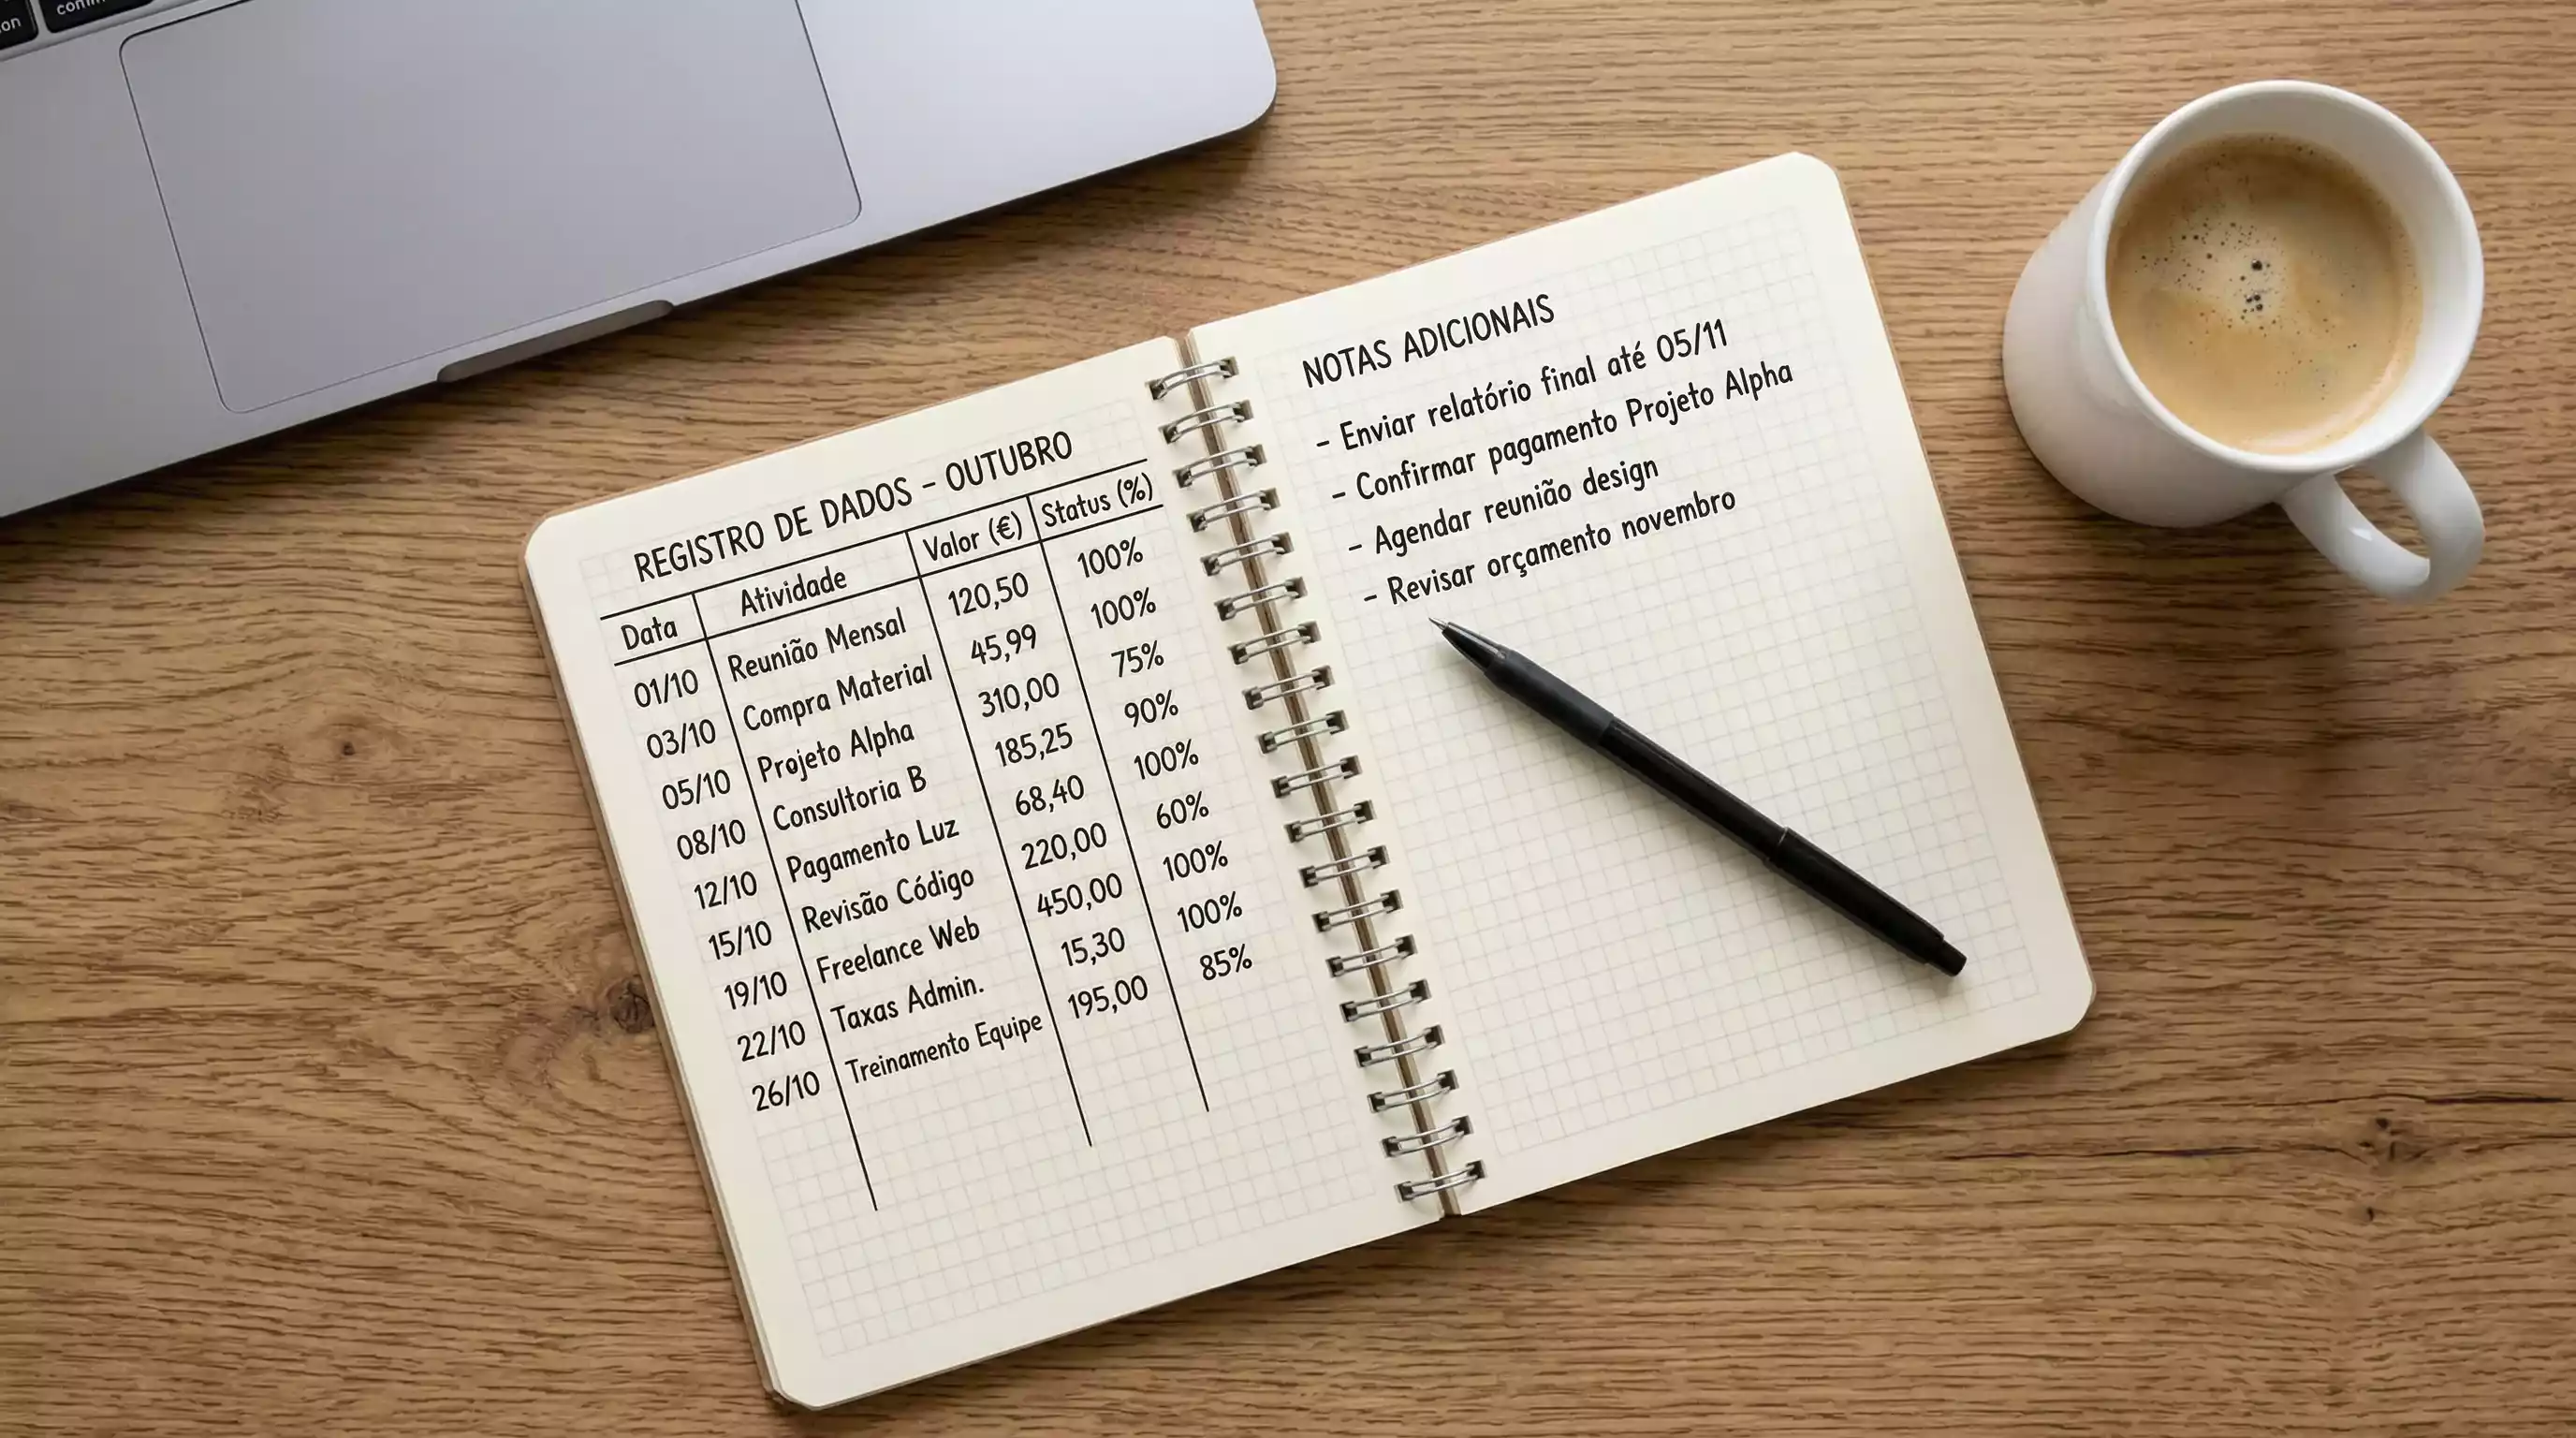 on
comm
REGISTRO DE DADOS - OUTUBRO
Data Atividade Valor (€) Status (%)
01/10 Reunião Mensal 120,50 100%
03/10 Compra Material 45,99 100%
05/10 Projeto Alpha 310,00 75%
08/10 Consultoria B 185,25 90%
12/10 Pagamento Luz 68,40 100%
15/10 Revisão Código 220,00 60%
19/10 Freelance Web 450,00 100%
22/10 Taxas Admin. 15,30 100%
26/10 Treinamento Equipe 195,00 85%
NOTAS ADICIONAIS
- Enviar relatório final até 05/11
- Confirmar pagamento Projeto Alpha
- Agendar reunião design
- Revisar orçamento novembro